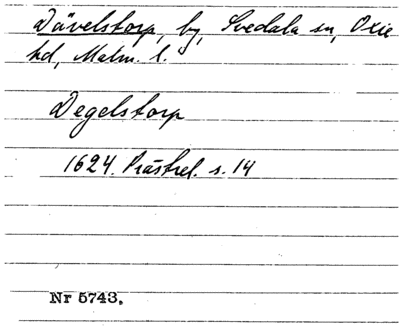 Dävelstorp, by, Svedala sn, Oxie
hd, Malm. l.
Degelstorp
1624. Prästrel. s. 14
Nr 5743.